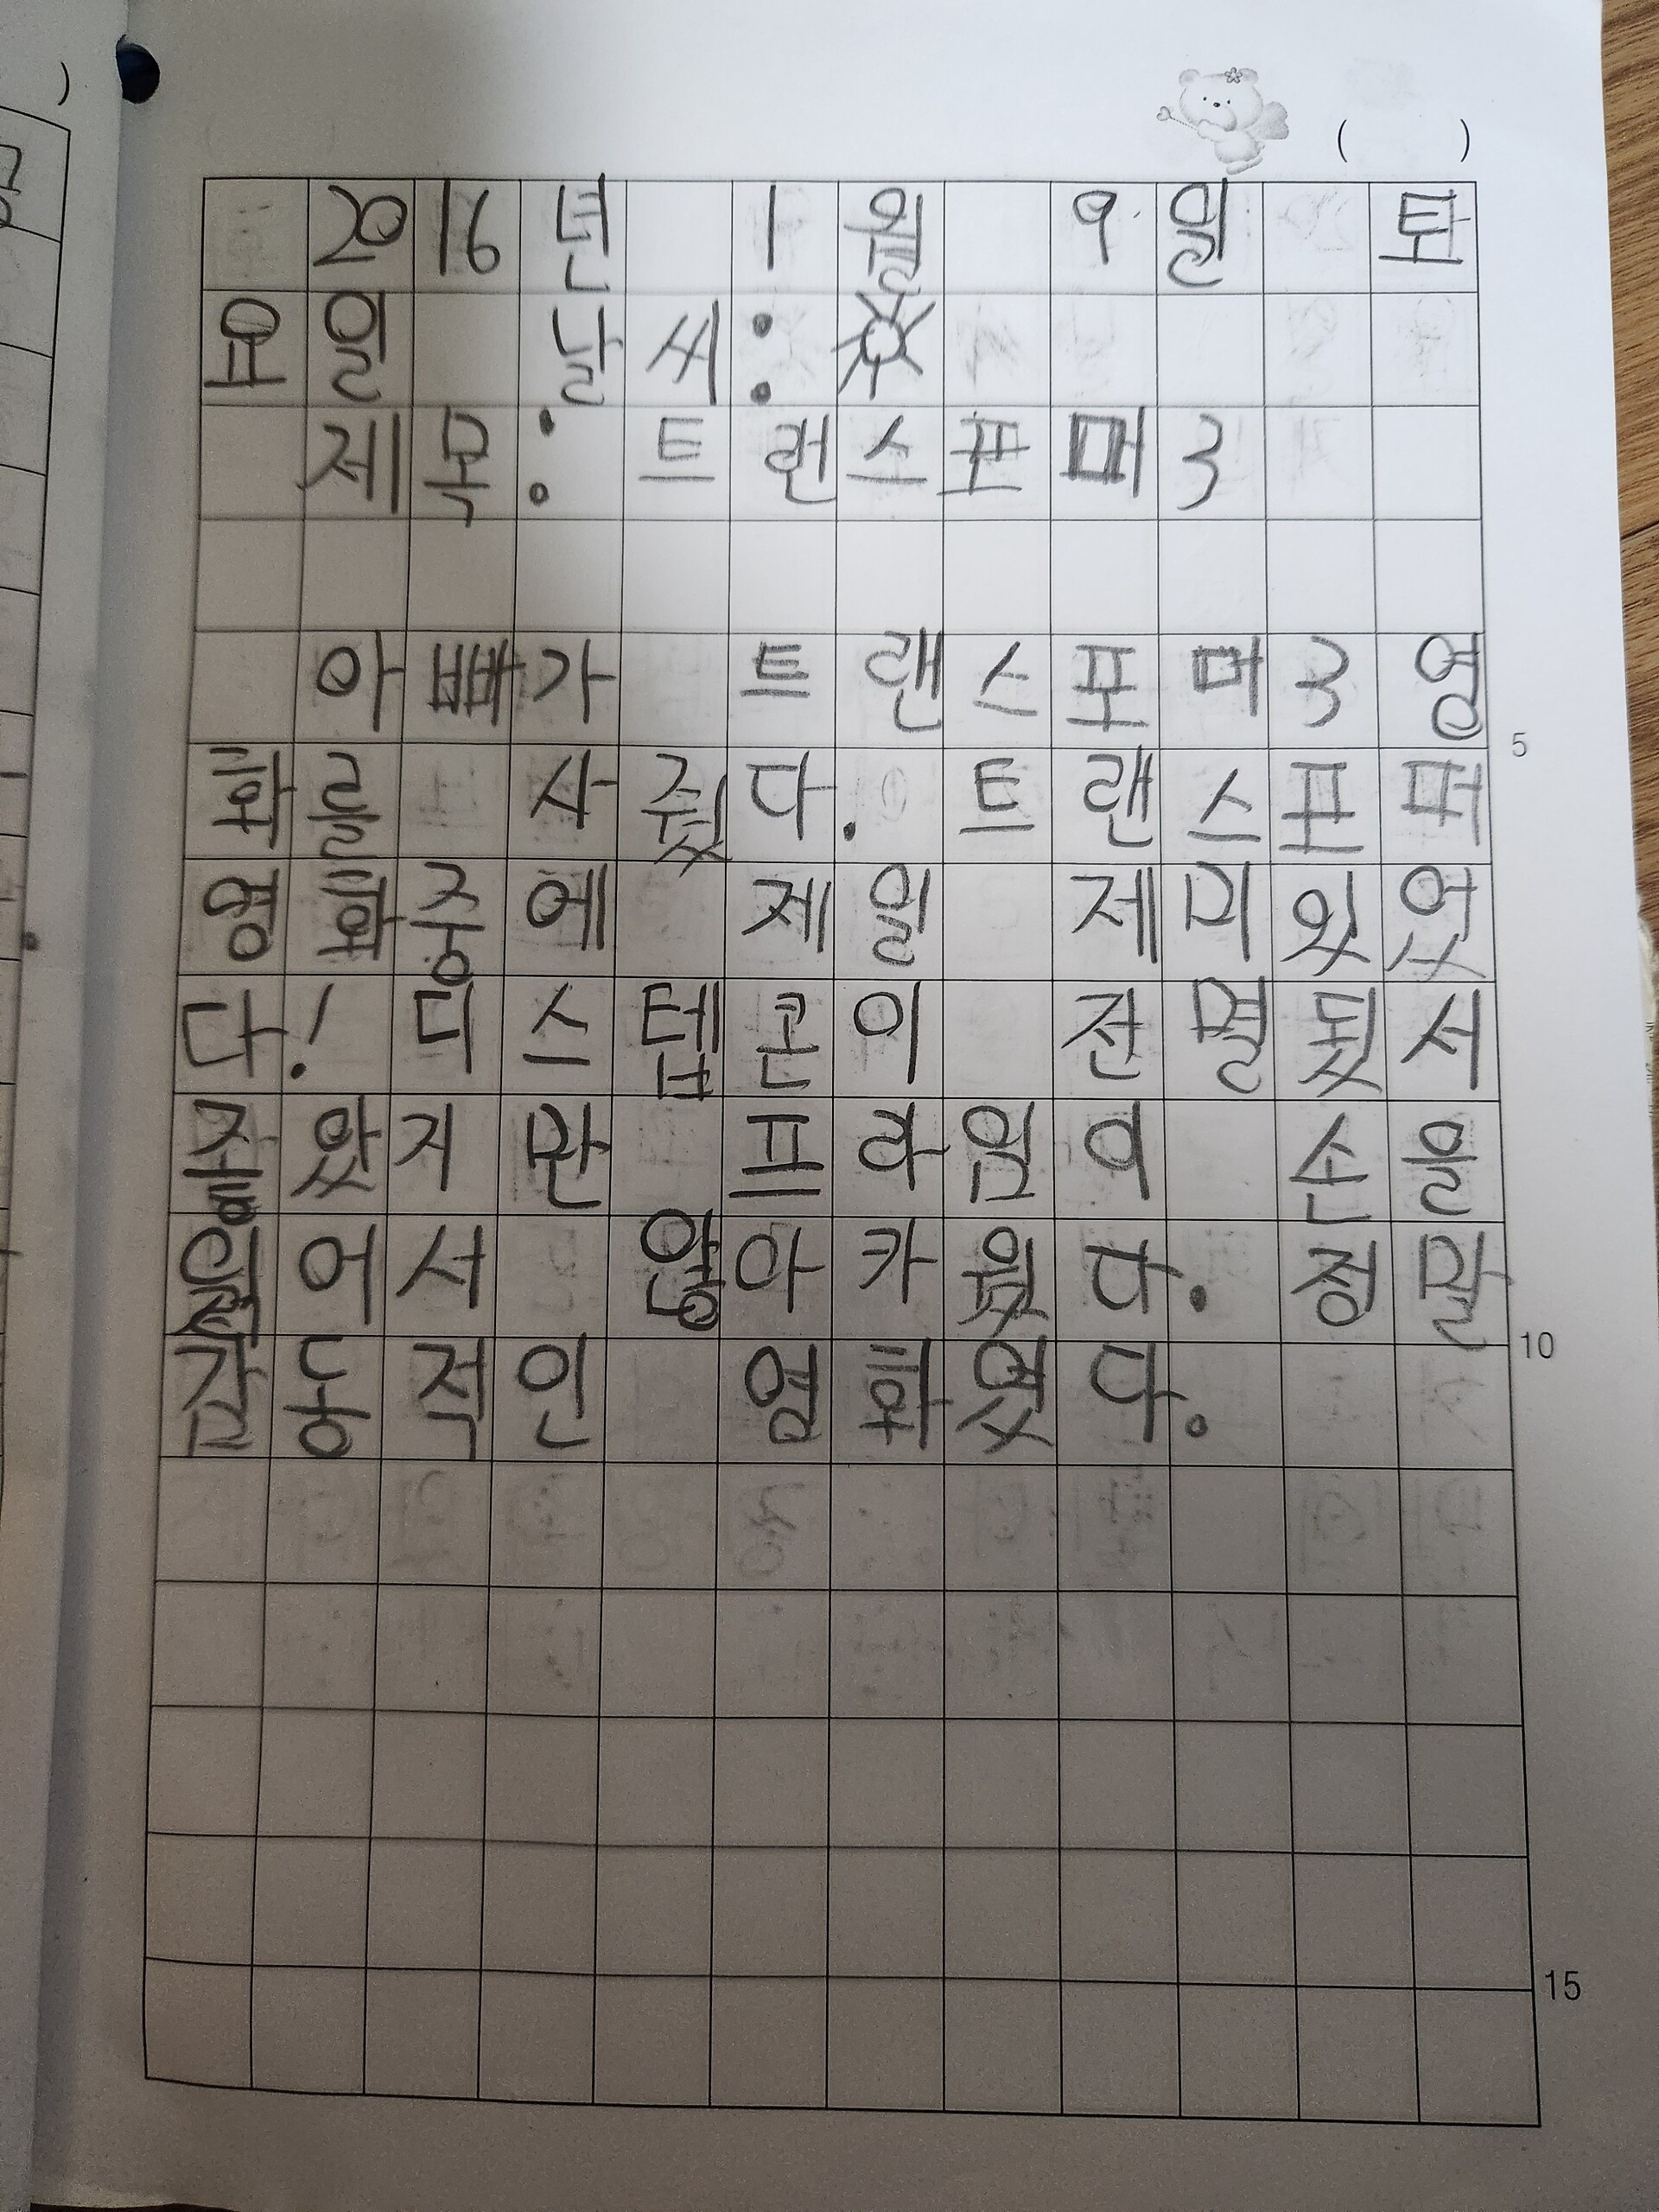 ( )
2016년 1월 9일 토
요일 날씨:
제목: 트랜스포머3
아빠가 트랜스포머3 영
화를 사줬다. 트랜스포머
영화중에 제일 제미있었
다! 디스텝콘이 전멸됬서
좋았지만 프라임이 손을
잃어서 않아카웠다. 정말
감동적인 영화였다.
5
10
15